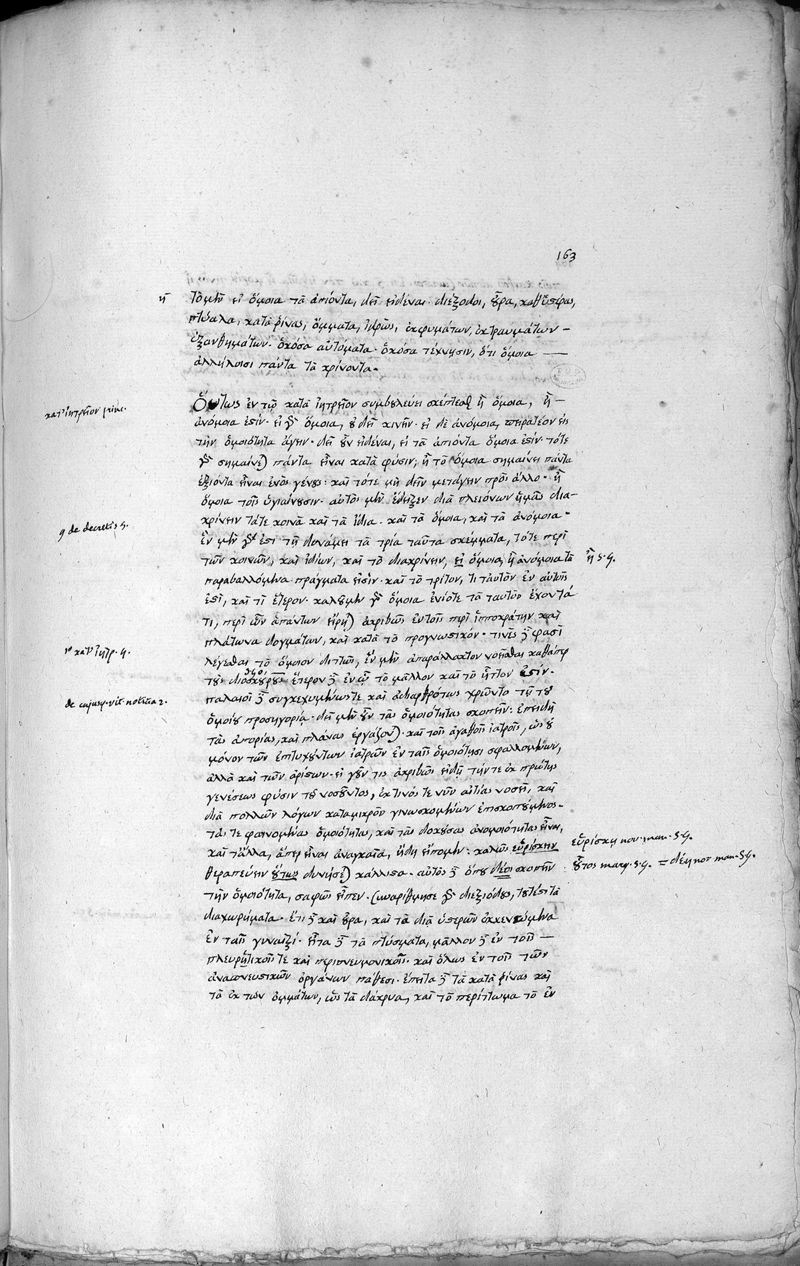 163
τὸ μὴν εἰ ὅμοια τὰ ἀπιόντα, δεῖ εἰδέναι. διέξοδοι, οὖρα, καθ' ὑστέρας,
πτύαλα, κατὰ ῥῖνας, ὄμματα, ἱδρὼς, ἐκφυμάτων, ἐκ τραυμάτων –
ἐξανθημάτων. ὁκόσα αὐτόματα. ὁκόσα τέχνησιν, ὅτι ὅμοια —
ἀλλήλοισι πάντα τὰ κρίνοντα.
Οὕτως ἐν τῷ κατὰ ἰητρεῖον συμβουλεύει σκέπτεσθαι ἢ ὅμοια, ἢ –
κατ' ἰητρεῖον
ἀνόμοια ἐστίν. εἰ γὰρ ὅμοια, οὐ δεῖ κινεῖν. εἰ δὲ ἀνόμοια, πειρατέον εἰς
τὴν ὁμοιότητα ἄγειν. δεῖ οὖν εἰδέναι, εἰ τὰ ἀπιόντα ὅμοια ἐστίν. τότε
γὰρ σημαίνει πάντα εἶναι κατὰ φύσιν, ἢ τὸ ὅμοια σημαίνει πάντα
ἐξιόντα εἶναι ἑνὸς γένους. καὶ τότε μὴ δεῖν μετάγειν πρὸς ἄλλο. ἢ
ὅμοια τοῖς ὑγιαίνουσιν. αὐτὸς μὲν ἔδειξεν διὰ πλειόνων ἡμᾶς δια-
κρίνειν τάτε κοινὰ καὶ τὰ ἴδια. καὶ τὰ ὅμοια, καὶ τὰ ἀνόμοια.
9 de decretis 5.
ἓν μὲν γὰρ ἐστι τῇ δυνάμει τὰ τρία ταῦτα σκέμματα, τότε περὶ
τῶν κοινῶν, καὶ ἰδίων, καὶ τὸ διακρίνειν, εἰ ὅμοια, ἢ ἀνόμοια τὰ
ἢ 5.g.
παραβαλλόμενα πράγματα εἰσίν. καὶ τὸ τρίτον, τί ταὐτὸν ἐν αὐτοῖς
ἐστὶ, καὶ τί ἕτερον. καλοῦμεν γὰρ ὅμοια ἐνίοτε τὰ ταὐτὸν ἔχοντά
τι, περὶ ὧν ἁπάντων εἴρηται ἀκριβῶς ἐν τοῖς περὶ ἱπποκράτην καὶ
πλάτωνα δογμάτων, καὶ κατὰ τὸ προγνωστικόν. τινὲς δὲ φασὶ
1° κατ' ἰητρ. g.
λέγεσθαι τὸ ὅμοιον διττῶς, ἓν μὲν ἀπαράλλακτον νοῆσθαι καθάπερ
τοὺς διοσκούρους ἕτερον δὲ ἐν ᾧ τὸ μᾶλλον καὶ τὸ ἧττον ἐστίν.
παλαιοὶ δὲ συγκεχυμένως τε καὶ ἀδιαρθρώτως χρῶνται τῇ τοῦ
de cujusq. vit. notitia 2.
ὁμοίου προσηγορίᾳ. δεῖ μὲν οὖν τὰς ὁμοιότητας σκοπεῖν. ἐπειδὴ
τὰς ἀπορίας, καὶ πλάνας ἐργάζονται. καὶ τοῖς ἀγαθοῖς ἰατροῖς, ὡς οὐ
μόνον τῶν ἐπιτυχόντων ἰατρῶν ἐν ταῖς ὁμοιότησι σφαλλομένων,
ἀλλὰ καὶ τῶν ἀρίστων. εἰ γοῦν τις ἀκριβῶς εἰδῇ τήν τε ἐκ πρώτης
γενέσεως φύσιν τοῦ νοσοῦντος, ἐκ τινός τε νῦν αἰτίας νοσεῖ, καὶ
διὰ πολλῶν λόγων καταμικρὸν γινωσκομένων ἐπισκοπούμενος –
τάς τε φαινομένας ὁμοιότητας, καὶ τὰς δοκούσας ἀνομοιότητας εἶναι,
καὶ τἄλλα, ἅπερ εἶναι ἀναγκαῖα, ἤδη εἴπομεν. καλῶς εὑρίσκην
εὑρίσκη nov. man. 5.g.
θεραπεύειν οὕτως δυνήσεται κάλλιστα. αὐτὸς δὲ ὅπου δέοι σκοπεῖν
οὗτος marg. 5.g. = δέη nov man. 5g.
τὴν ὁμοιότητα, σαφῶς εἶπεν. συναρίθμησε γὰρ διεξόδους, τουτέστι τὰ
διαχωρήματα. ἔτι δὲ καὶ οὖρα, καὶ τὰ διὰ ὑστερῶν ἐκκενούμενα
ἐν ταῖς γυναιξί. εἶτα δὲ τὰ πτύσματα, μᾶλλον δὲ ἐν τοῖς —
πλευριτικοῖς τε καὶ περιπνευμονικοῖς. καὶ ὅλως ἐν τοῖς τῶν
ἀναπνευστικῶν ὀργάνων πάθεσι. ἔπειτα δὲ τὰ κατὰ ῥῖνας καὶ
τὰ ἐκ τῶν ὀμμάτων, ὡς τὰ δάκρυα, καὶ τὸ περίττωμα τὸ ἐν